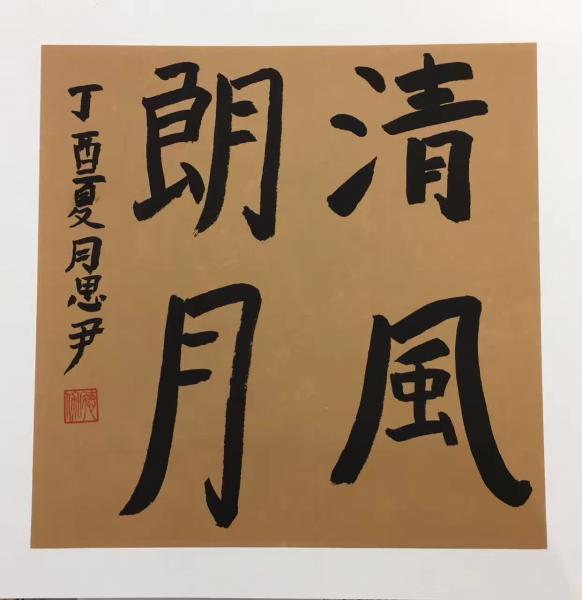 清風
朗月
丁酉夏月思尹